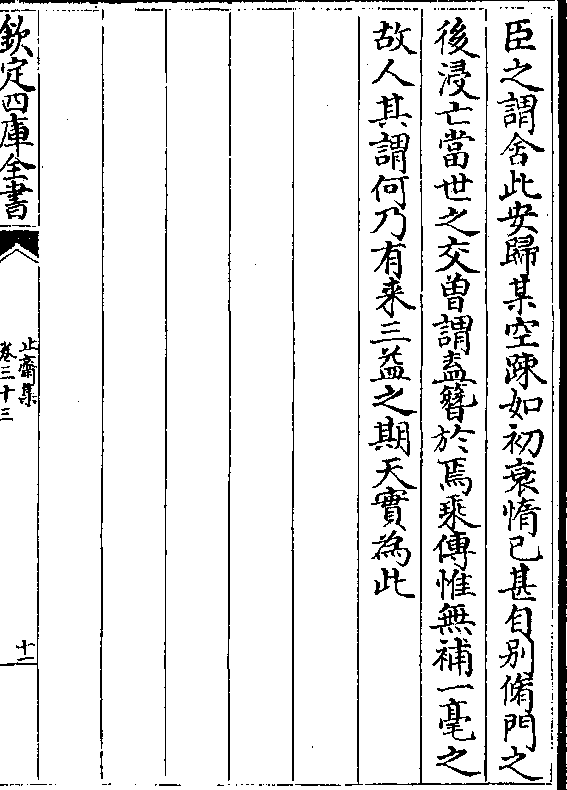 臣之謂舍此安歸某空疎如初衰惰已甚自別脩門之
後浸亡當世之交曾謂盍簪於焉乘傳惟無補一毫之
故人其謂何乃有来三益之期天實為此
欽定四庫全書
止齋集
卷三十三
十一